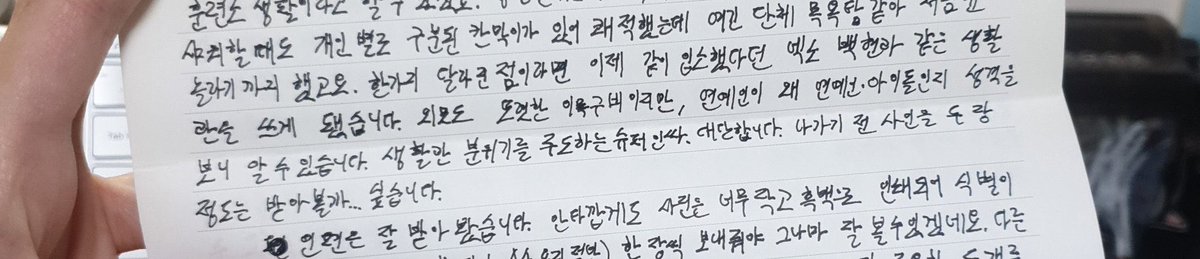 훈련소 생활이라고 할 수
샤워할 때도 개인 별로 구분된 칸막이가 있어 쾌적했는데 여긴 단체 목욕탕 같아 처음엔
놀라기까지 했고요. 한가지 달라진 점이라면 이제 같이 입소했다던 엑소 백현과 같은 생활
관을 쓰게 됐습니다. 외모도 또렷한 이목구비이지만, 연예인이 왜 연예인·아이돌인지 성격을
보니 알 수 있습니다. 생활관 분위기를 주도하는 슈퍼인싸. 대단합니다. 나가기 전 사인을 두 장
정도는 받아볼까... 싶습니다.
인편은 잘 받아 봤습니다. 안타깝게도 사진은 너무 작고 흑백으로 인쇄되어 식별이
한 장씩 보내줘야 그나마 잘 볼 수 있겠네요. 다른